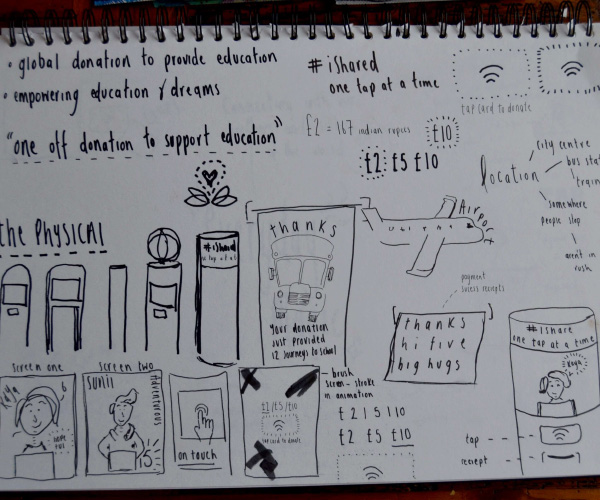 • global donation to provide education
• empowering education & dreams
"one off donation to support education"
# iShared
one tap at a time
tap card to donate
£2 = 167 indian rupees
£10
£2 £5 £10
location
city centre
bus
train
somewhere
people stop
aren't in
rush
the PHYSICAL
#iShared
thanks
Your donation
just provided
12 journeys to school
Airport
payment
sucess reciepts
thanks
hi five
big hugs
#ishare
one tap at a time
Kaya
tap
reciept
screen one
Kaya
6
screen two
sunil
Adventurous
15
on touch
£2/£5/£10
tap card to donate
– brush
screen – stroke
in animation
£ 2 | 5 | 10
£2 £5 £10